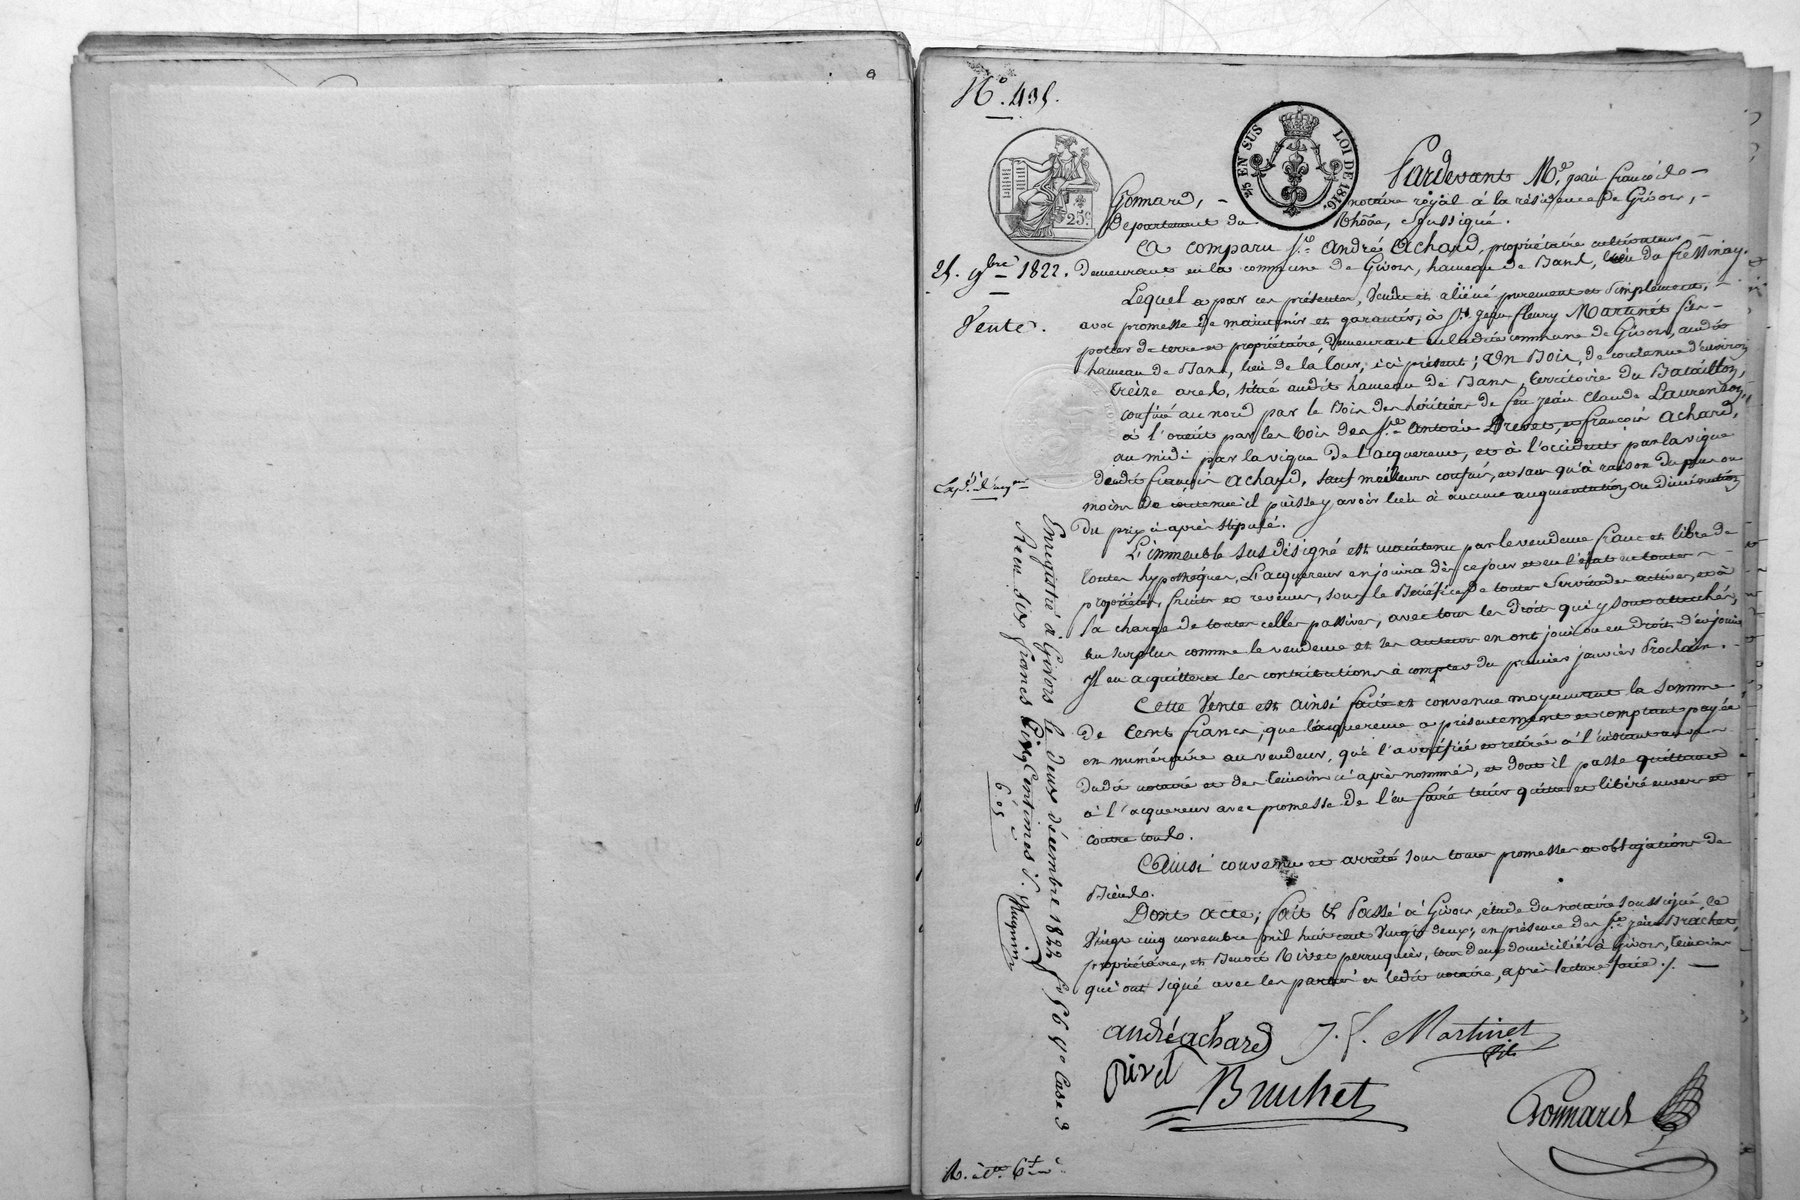 N.° 435.
2/5 EN SUS LOI DE 1816.
25.c
Pardevant M.e jean françois
Gonnard, notaire royal à la résidence de Givors,
département du Rhône, soussigné.
A comparu S.r andré Achard, propriétaire cultivateur
25. 9bre 1822.
demeurant en la commune de Givors, hameau de Bans, lieu du fressinay.
Lequel a par ces présentes, Vendu et aliéné purement et simplement,
Vente.
avec promesse de maintenir et garantir, à S.r jean fleury Martinet fils
potier de terre et propriétaire, demeurant en ladite commune de Givors, audit
hameau de Bans, lieu de la tour, ici présent; Un Bois, de contenue d'environ
treize ares, situé audit hameau de Bans, territoire du Bataillon,
confiné au nord par le Bois des héritiers de feu jean Claude Laurenson,
à l'orient par les bois des S.rs antoine Drevet, et françois Achard,
au midi par la vigne de l'acquereur, et à l'occident par la vigne
dudit françois Achard, sauf meilleurs confins, et sans qu'à raison du plus ou
moins de contenue il puisse y avoir lieu à aucune augmentation ou diminution
du prix ci après stipulé.
L'immeuble sus désigné est maintenu par le vendeur franc et libre de
toutes hypothèques, L'acquereur en jouira dès ce jour et en l'état de toutes
propriétés, fruits et revenus, sous le Bénéfice de toutes servitudes actives, et à
la charge de toutes celles passives, avec tous les droits qui y sont attachés,
au surplus comme le vendeur et ses auteurs en ont joui ou eu droit d'en jouir.
Il en acquittera les contributions à compter du premier janvier prochain.
Cette Vente est ainsi faite et convenue moyennant la somme
de Cent francs, que l'acquereur a présentement et comptant payée
en numéraire au vendeur, qui l'a vérifiée et retirée à l'instant au vu
dudit notaire et des témoins ci après nommés, et dont il passe quittance
à l'acquereur avec promesse de l'en faire tenir quitte et libéré envers et
contre tous.
Ainsi convenu et arrêté sous toues promesses et obligations de
Biens.
Dont acte; fait & Passé à Givors, étude du notaire soussigné, le
Vingt cinq novembre mil huit cent Vingt deux; en présence des S.rs jean Brachet,
propriétaire, et Benoit Rivet perruquier, tous deux domiciliés à Givors, témoins
qui ont signé avec les parties et ledit notaire, après lecture faite ./.
Enregistré à Givors le deux décembre 1822 f° 56 v° Case 3
Reçu six francs Cinq Centimes S.
6 05
andré achard J. f. Martinet
fils
Rivet
Bruchet
Gonnard